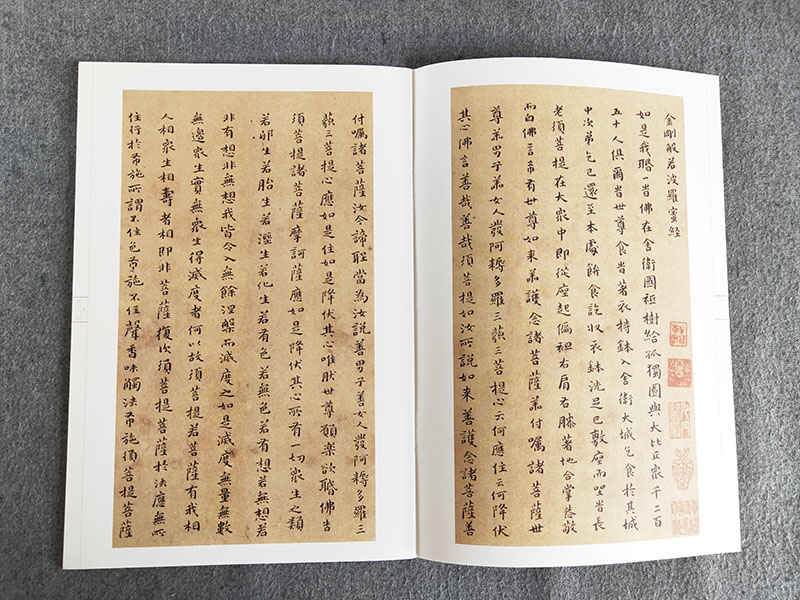 金剛般若波羅蜜經
如是我聞一旹佛在舍衛國祇樹給孤獨園與大比丘眾千二百
五十人俱爾旹世尊食旹著衣持鉢入舍衛大城乞食於其城
中次第乞已還至本處飯食訖收衣鉢洗足已敷座而坐旹長
老須菩提在大眾中即從座起偏袒右肩右膝著地合掌恭敬
而白佛言希有世尊如來善護念諸菩薩善付囑諸菩薩世
尊善男子善女人發阿耨多羅三藐三菩提心云何應住云何降伏
其心佛言善哉善哉須菩提如汝所說如來善護念諸菩薩善
付囑諸菩薩汝今諦聽當為汝說善男子善女人發阿耨多羅三
藐三菩提心應如是住如是降伏其心唯然世尊願樂欲聞佛告
須菩提諸菩薩摩訶薩應如是降伏其心所有一切眾生之類
若卵生若胎生若溼生若化生若有色若無色若有想若無想若
非有想非無想我皆令入無餘涅槃而滅度之如是滅度無量無數
無邊眾生實無眾生得滅度者何以故須菩提若菩薩有我相
人相眾生相壽者相即非菩薩復次須菩提菩薩於法應無所
住行於布施所謂不住色布施不住聲香味觸法布施須菩提菩薩